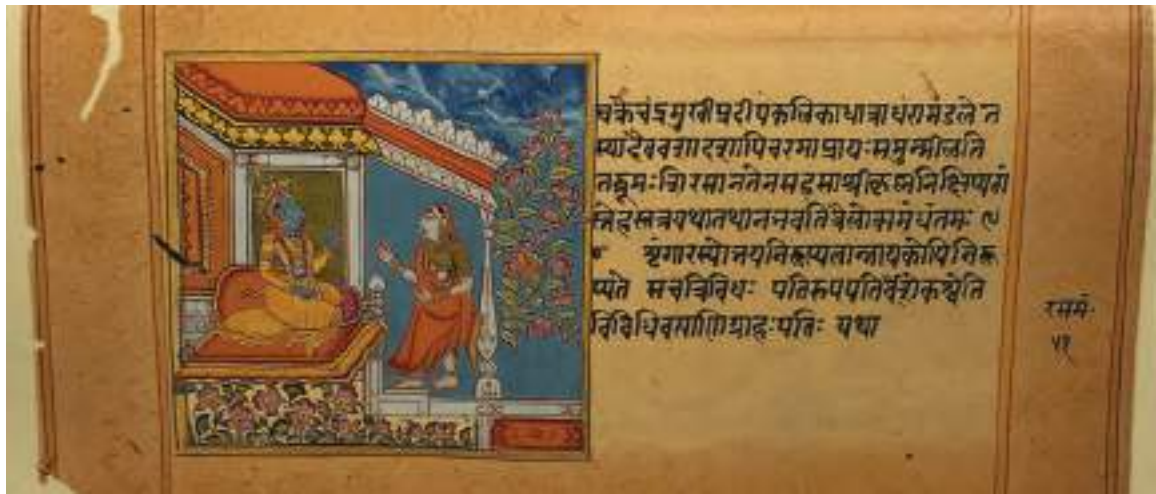 चक्रे चंद्रमुखी प्रदीपकलिका धात्रा धरामंडले त
स्या दैववशाद्दशापि चरमा प्रायः समुन्मीलति
तद्ब्रूमः शिरसा नतेन सहसा श्रीकृष्ण निक्षिप्यतां
स्नेहस्तत्र यथा तथा न भवति त्रैलोक्यमंधंतमः ९
शृंगारस्योभयनिरूप्यत्वान्नायकोपि निरू
प्यते स च त्रिविधः पतिरुपपतिर्वैशिकश्चेति
विधिवत्पाणिग्राहः पतिः यथा
रसमं॰
५१